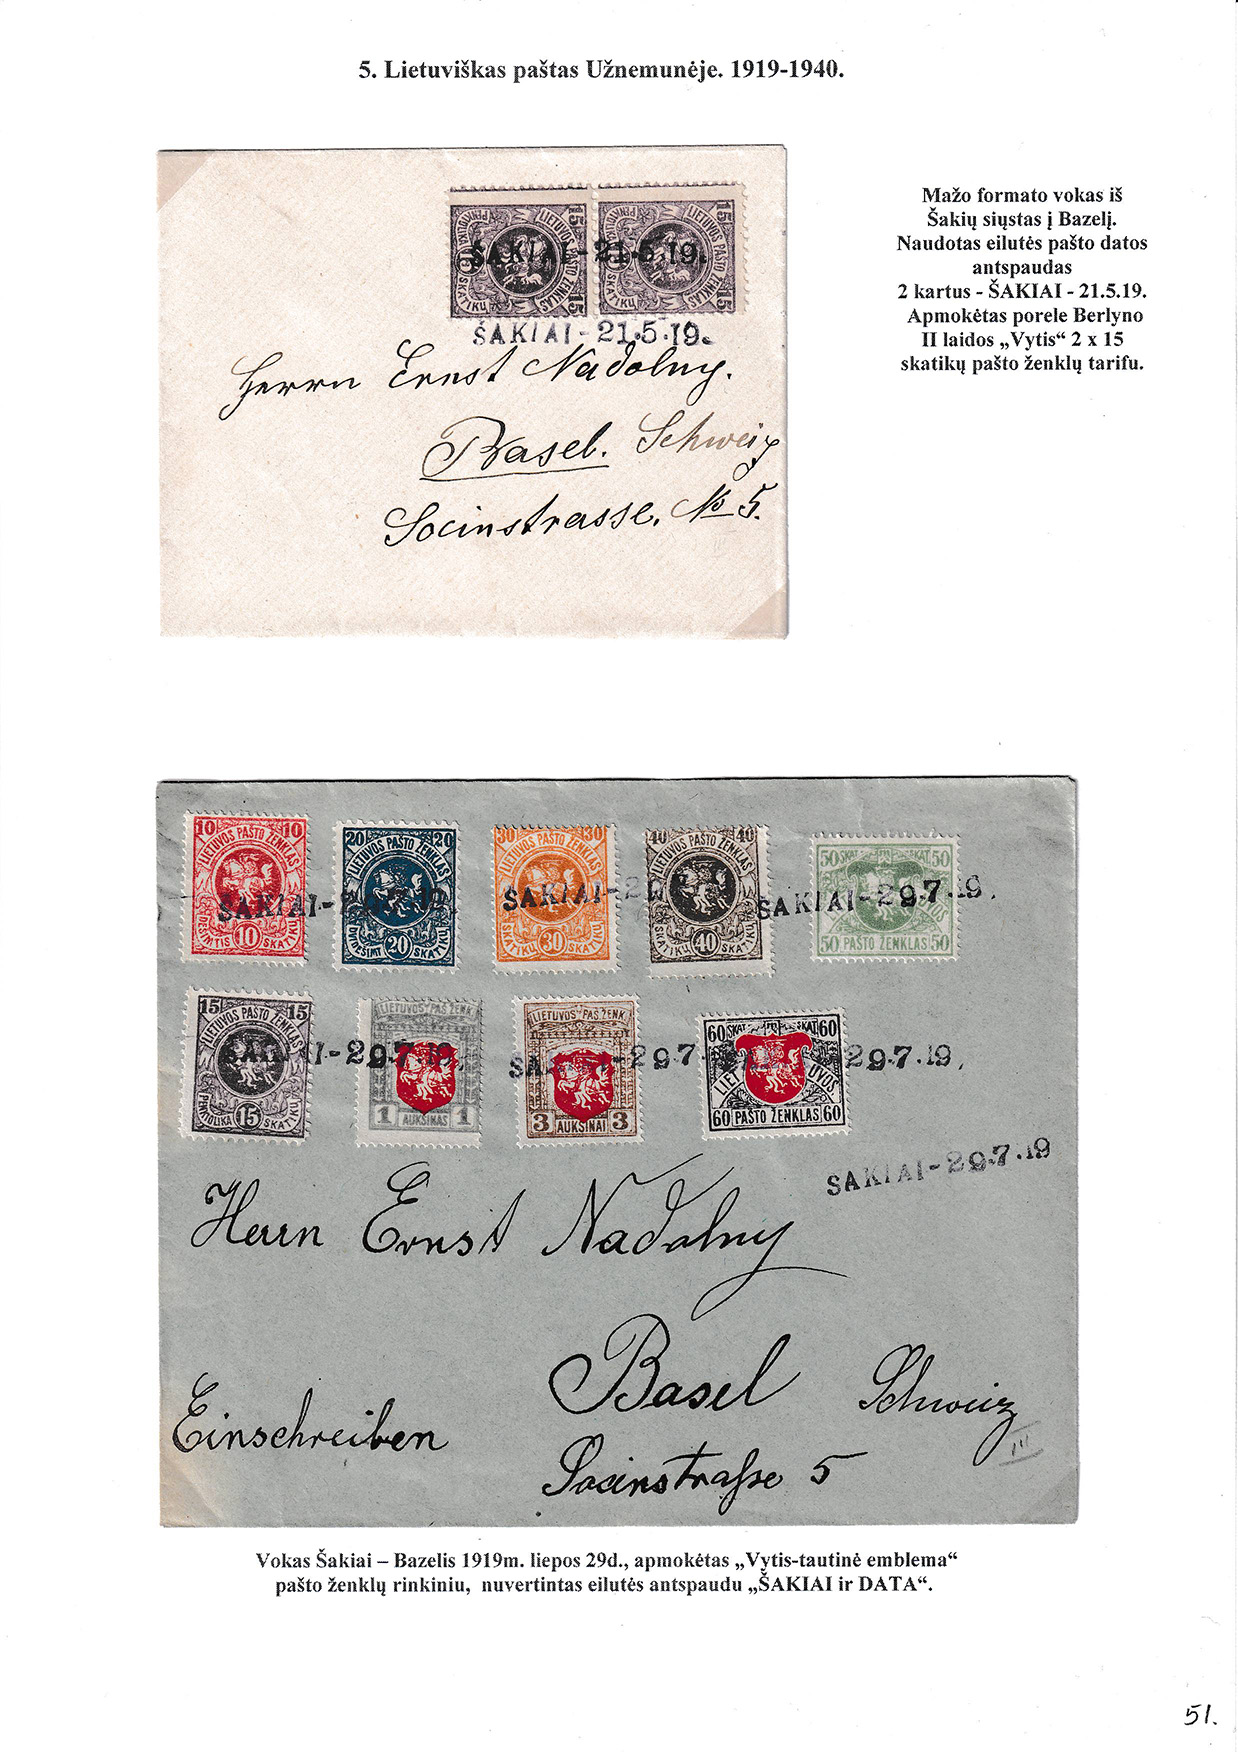 5. Lietuviškas paštas Užnemunėje. 1919-1940.
Mažo formato vokas iš
Šakių siųstas į Bazelį.
Naudotas eilutės pašto datos
antspaudas
2 kartus - ŠAKIAI - 21.5.19.
Apmokėtas porele Berlyno
II laidos „Vytis“ 2 x 15
skatikų pašto ženklų tarifu.
15 LIETUVOS PAŠTO ŽENKLAS 15 SKATIKŲ
15 LIETUVOS PAŠTO ŽENKLAS 15 SKATIKŲ
ŠAKIAI-21.5.19.
ŠAKIAI-21.5.19.
Herrn Ernst Nadolny.
Basel. Schweiz
Socinstrasse. No 5.
10 LIETUVOS PAŠTO ŽENKLAS 10 DEŠIMTIS 10 SKATIKŲ
20 LIETUVOS PAŠTO ŽENKLAS 20 DVIDEŠIMT 20 SKATIKŲ
30 LIETUVOS PAŠTO ŽENKLAS 30 SKATIKŲ 30 SKATIKŲ
40 LIETUVOS PAŠTO ŽENKLAS 40 SKATIKŲ 40 SKATIKŲ
50 SKAT. SKAT. 50 LIETUVOS 50 PAŠTO ŽENKLAS 50
ŠAKIAI-29.7.19.
ŠAKIAI-29.7
ŠAKIAI-29.7.19.
15 LIETUVOS PAŠTO ŽENKLAS 15 PENKIOLIKA 15 SKATIKŲ
LIETUVOS PAŠ. ŽENK. 1 AUKSINAS 1
LIETUVOS PAŠ. ŽENK. 3 AUKSINAI 3
60 SKAT. SKAT. 60 LIETUVOS 60 PAŠTO ŽENKLAS 60
ŠAKIAI-29.7.19.
ŠAKIAI-29.7.
29.7.19.
ŠAKIAI-29.7.19
Herrn Ernst Nadolny
Basel Schweiz
Einschreiben
Socinstraße 5
III
Vokas Šakiai – Bazelis 1919m. liepos 29d., apmokėtas „Vytis-tautinė emblema“
pašto ženklų rinkiniu, nuvertintas eilutės antspaudu „ŠAKIAI ir DATA“.
51.